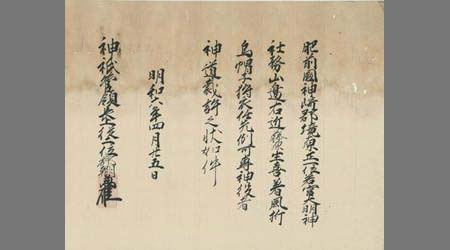 肥前國神崎郡境原正一位若宮大明神
社務山邊右近藤原生喜着風折
烏帽子狩衣任先例可専神役者
神道裁許之状如件
明和六年四月廿五日
神祇管領長上従二位卜部朝臣